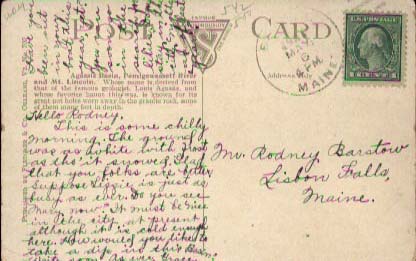 POST CARD
Agassiz Basin, Pemigewassett River
and Mt. Lincoln. Whose name is derived from
that of the famous geologist, Louis Agassiz, and
whose favorite haunt this was, is known for its
great pot holes worn away in the granite rock, some
of them many feet in depth.
Hello Rodney.
This is some chilly
morning. The ground
was as white with frost
as tho' it snowed. Glad
that you folks are better
Suppose Lizzie is just as
busy as ever. Do you see
Mary now? It must be nice
in the city at present
although it is cold enough
here. How would you like to
take a dip in this Basin.
Write soon. As ever Grace.
Have you
been out
for
this
year
in the
Mr. Rodney Barstow
Lisbon Falls,
Maine.
MAY
6
4 PM
MAINE